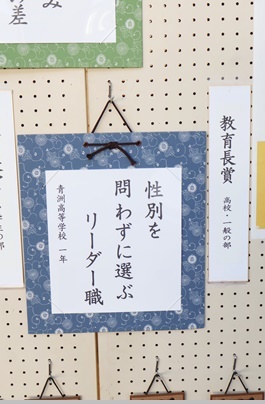 教育長賞
高校・一般の部
性別を
問わずに選ぶ
リーダー職
青洲高等学校 一年
み
の差